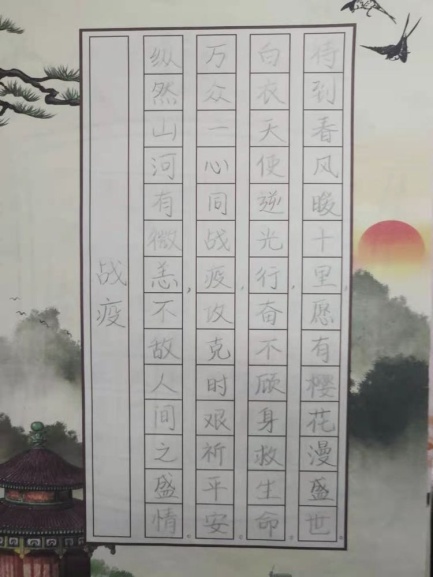 战疫
纵然山河有微恙,不敌人间之盛情。
万众一心同战疫,攻克时艰祈平安。
白衣天使逆光行,奋不顾身救生命。
待到春风暖十里,愿有樱花漫盛世。